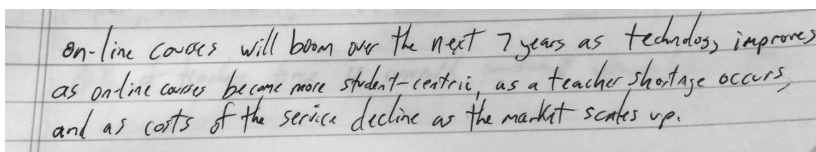 on-line courses will boom over the next 7 years as technology improves
as online courses become more student-centric, as a teacher shortage occurs,
and as costs of the service decline as the market scales up.